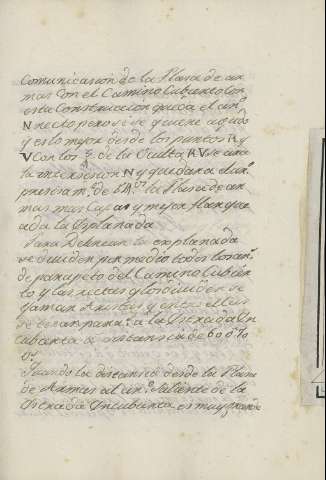 Comunicasion de la Plasa de ar
mas con el Camino Cubierto con
esta Construcción queda el an.º
N recto pero si se quiere agudo
y es lo mejor desde los puntos R y
V con los de la RV se ara
la intersesion N y quedara el an.º
N la Plasa de ar
mas mas Capas y mejor flanque
ada la Esplanada
Para Delinear la explanada
se dividen por medio todos los an.s
de parapeto del Camino Cubier
to y las rectas q los dividen se
llaman Aristas y entre ellas
se tiran para.s a la Estrada En
Cubierta a distancia de 60
Quando la distancia desde la Plasa
de Armas al an.º saliente de la
Estrada Incubierta es muy grande